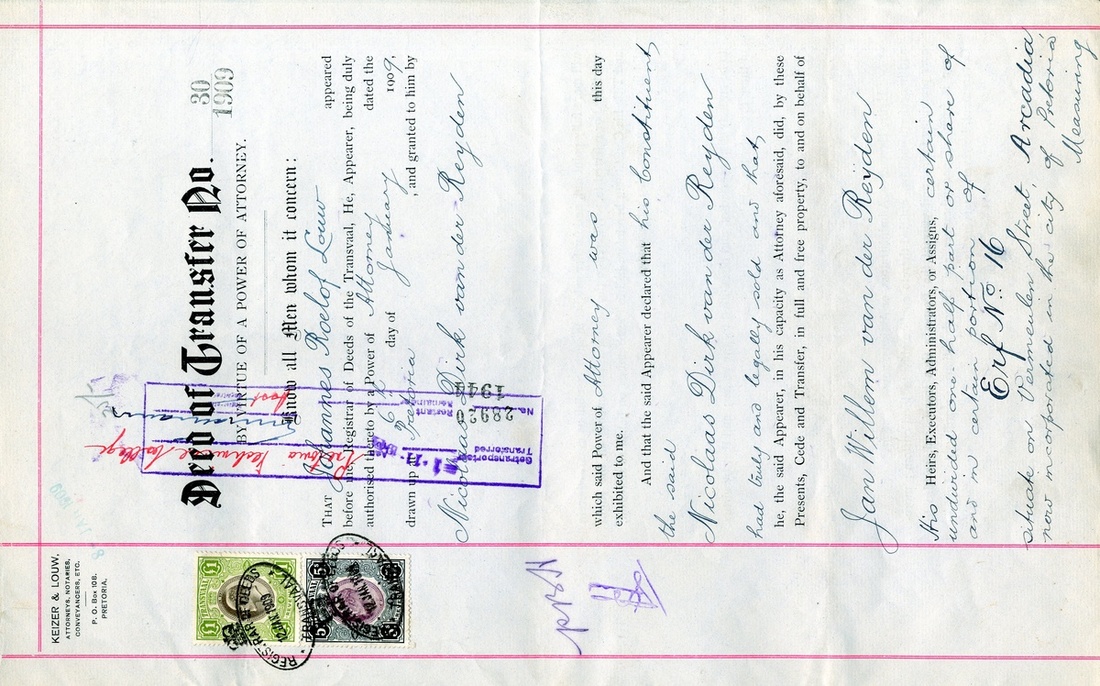 KEIZER & LOUW,
ATTORNEYS, NOTARIES,
CONVEYANCERS, ETC.
P. O. Box 108.
PRETORIA.
Deed of Transfer No. 30
1909
BY VIRTUE OF A POWER OF ATTORNEY.
Know all Men whom it concern:
THAT Johannes Roelof Louw appeared
before me, Registrar of Deeds of the Transvaal, He, Appearer, being duly
authorised thereto by a Power of Attorney dated the
day of January 1909,
drawn up Pretoria, and granted to him by
Nicolaas Dirk van der Reyden
which said Power of Attorney was this day
exhibited to me.
And that the said Appearer declared that his Constituent,
the said
Nicolaas Dirk van der Reyden
had truly and legally sold and that,
he, the said Appearer, in his capacity as Attorney aforesaid, did, by these
Presents, Cede and Transfer, in full and free property, to and on behalf of
Jan Willem van der Reyden
His Heirs, Executors, Administrators, or Assigns, certain
undivided one-half part or share of
and in certain portion of
Erf No. 16
situate on Vermeulen Street, Arcadia
now incorporated in the city of Pretoria
Measuring
Getransporteer
Transferred
Pretoria Technical College
No. 28920
1944
Restant
Remainder
£1 TRANSVAAL £1
REGISTRAR OF DEEDS
TRANSVAAL
12 JAN 1909
5/- 5/-